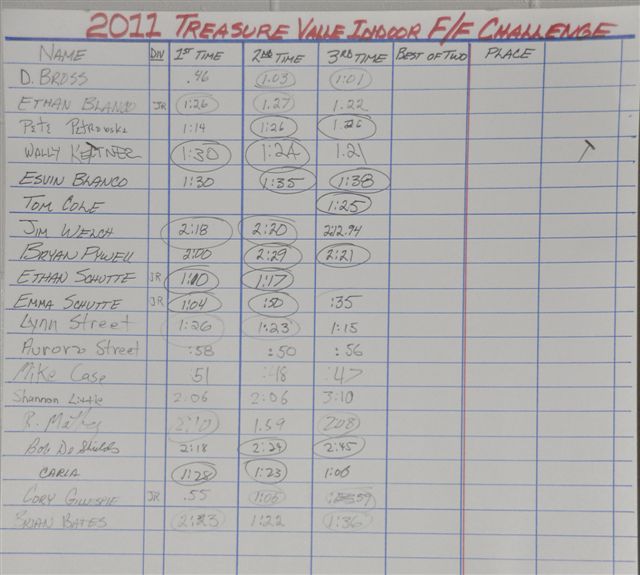 2011 TREASURE VALLE INDOOR F/F CHALLENGE
NAME DIV 1ST TIME 2ND TIME 3RD TIME BEST OF TWO PLACE
D. BROSS .46 1:03 1:01
ETHAN BLANCO JR 1:26 1.27 1.22
PETE PETROWSKE 1:14 1:26 1.26
WALLY KETTNER 1:30 1:24 1.21
ESVIN BLANCO 1:30 1:35 1:38
TOM COLE 1:25
JIM WELCH 2:18 2:20 2:12.94
BRYAN PYWELL 2:00 2:29 2:21
ETHAN SCHUTTE JR 1:10 1:17
EMMA SCHUTTE JR 1:04 :50 :35
Lynn Street 1:26 1:23 1:15
Aurora Street :58 :50 :56
Mike Case :51 :48 :47
Shannon 2:06 2:06 3:10
R. 2:10 1.59 2:08
Bob De Shields 2:18 2:24 2:45
CARLA 1:28 1:23 1:06
CORY GILLESPIE JR .55 1:06
BRIAN BATES 2:23 1:22 1:36